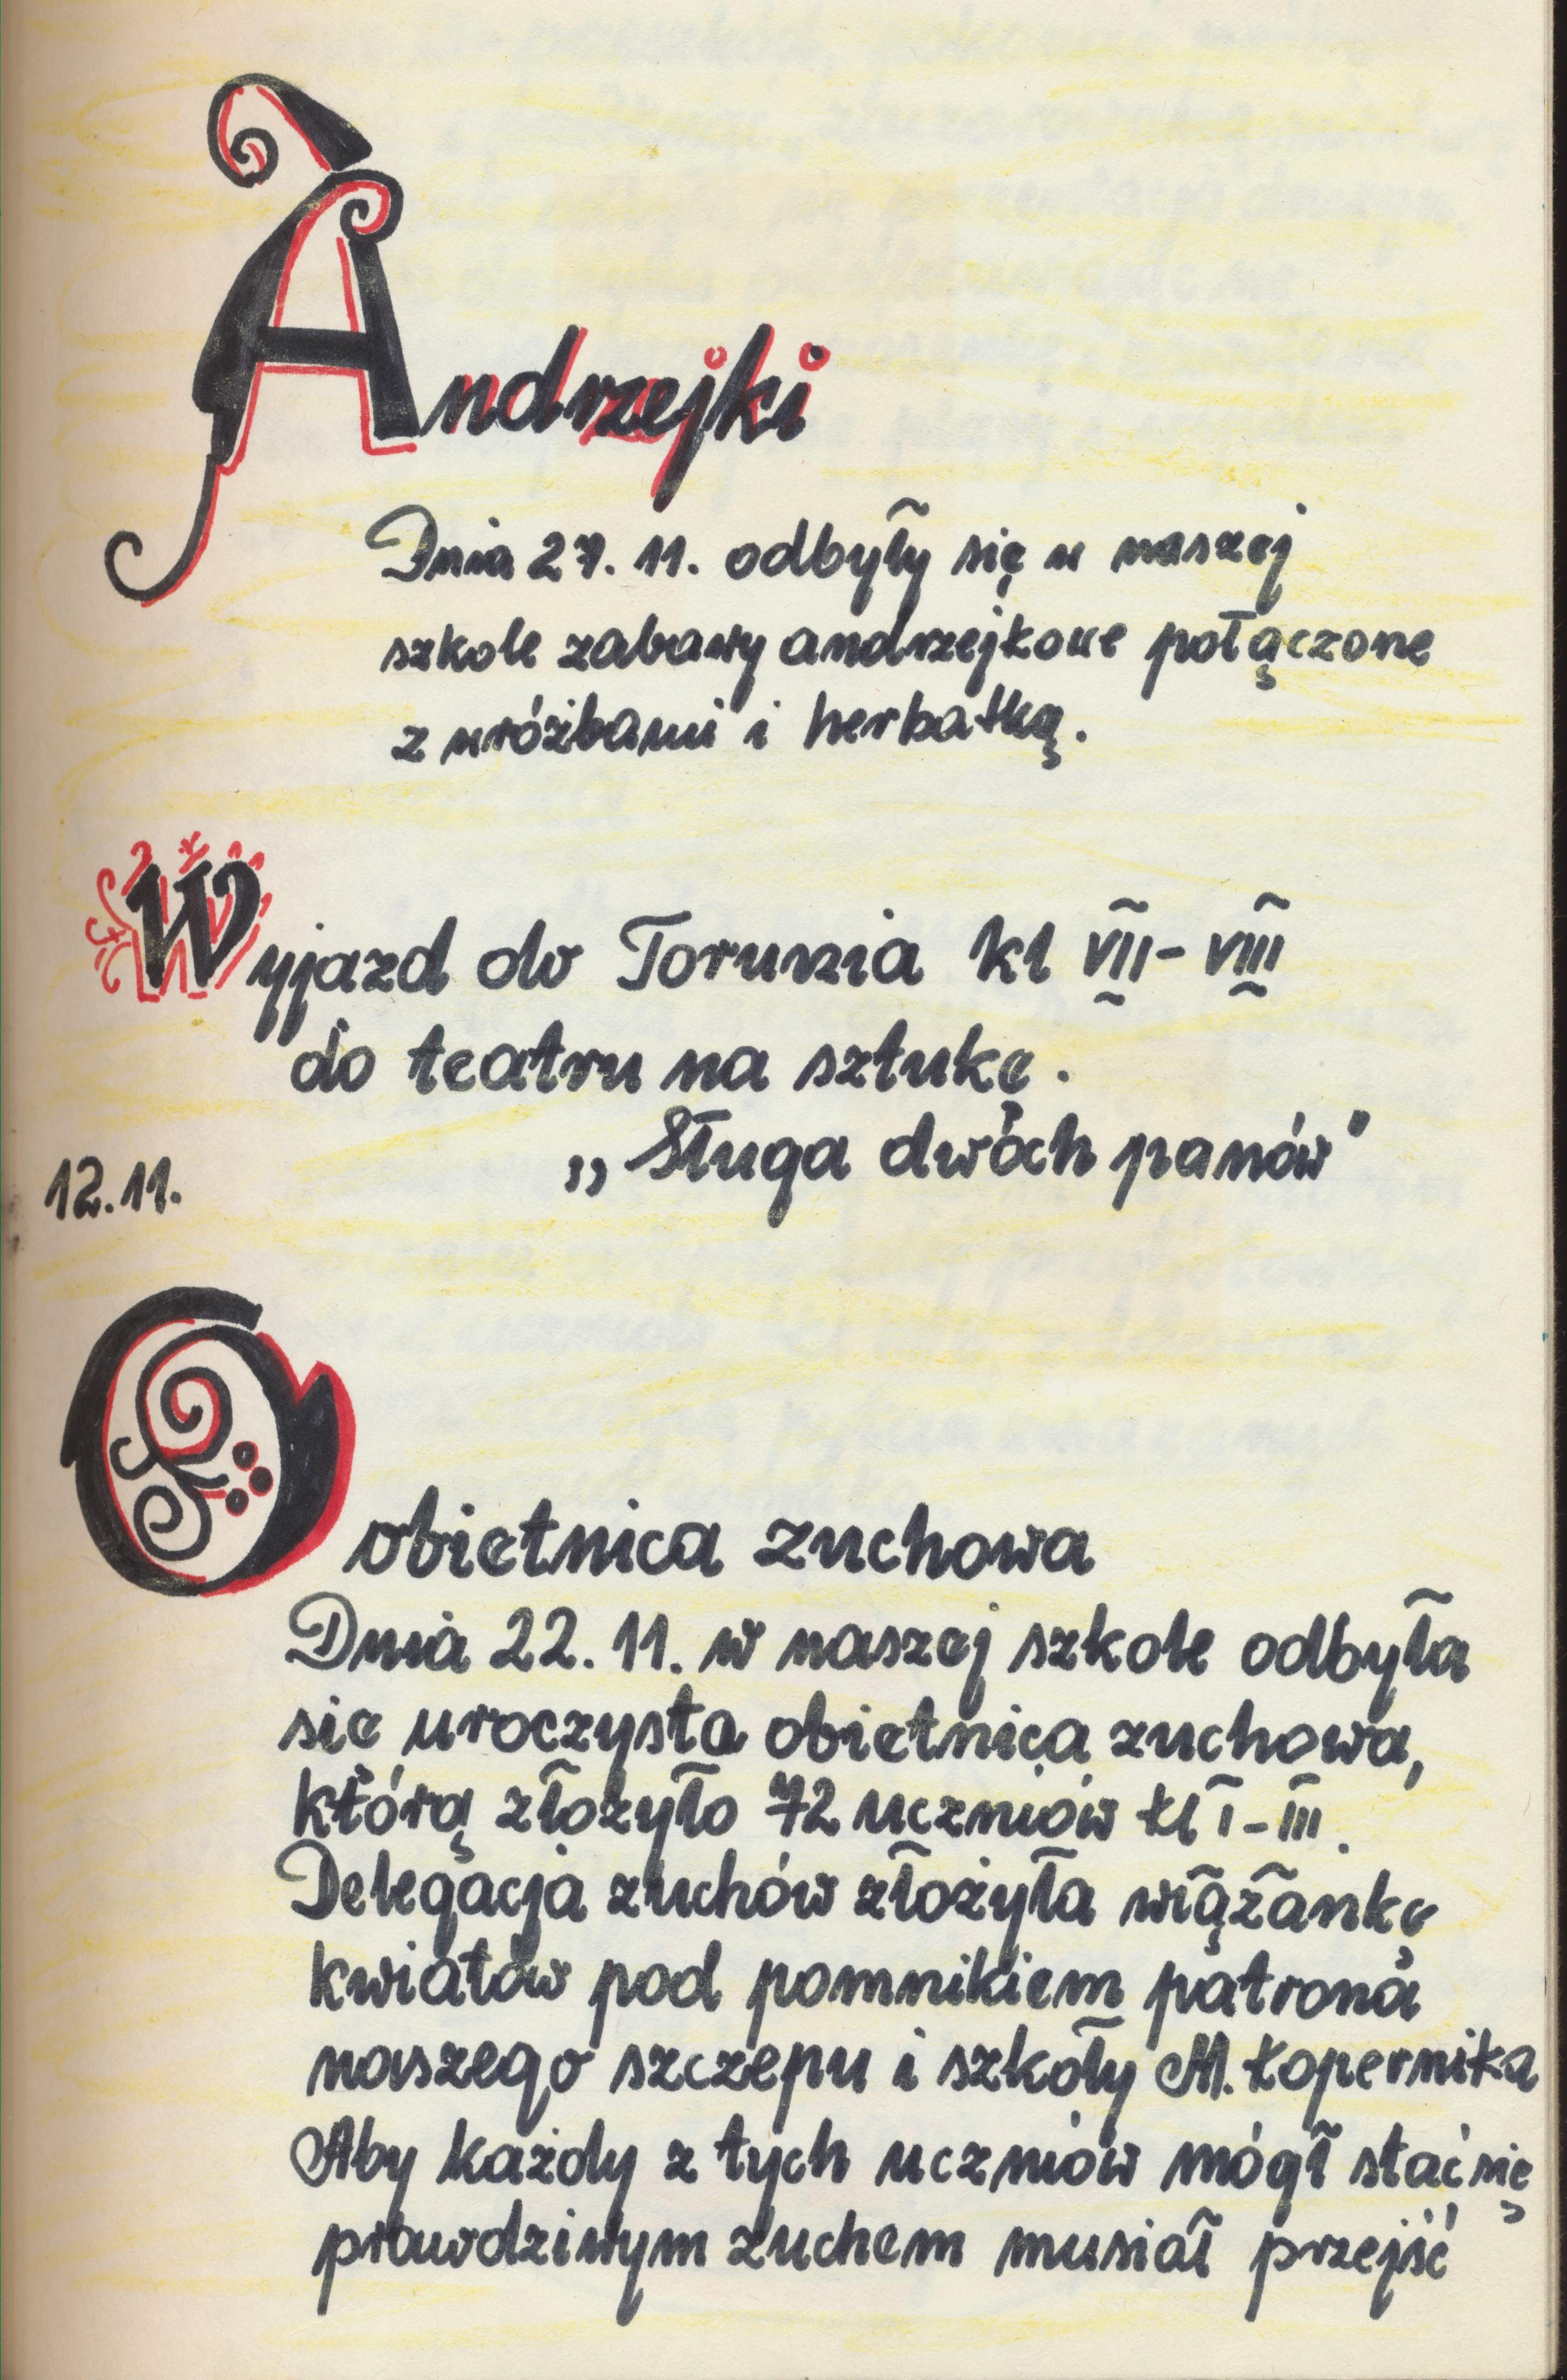 Andrzejki
Dnia 27. 11. odbyły się w naszej
szkole zabawy andrzejkowe połączone
z wróżbami i herbatką.
Wyjazd do Torunia kl VII - VIII
do teatru na sztukę.
„Sługa dwóch panów"
12.11.
Oobietnica zuchowa
Dnia 22. 11. w naszej szkole odbyła
się uroczysta obietnica zuchowa,
którą złożyło 72 uczniów kl I - III.
Delegacja zuchów złożyła wiązankę
kwiatów pod pomnikiem patrona
naszego szczepu i szkoły M. Kopernika
Aby każdy z tych uczniów mógł stać się
prawdziwym zuchem musiał przejść